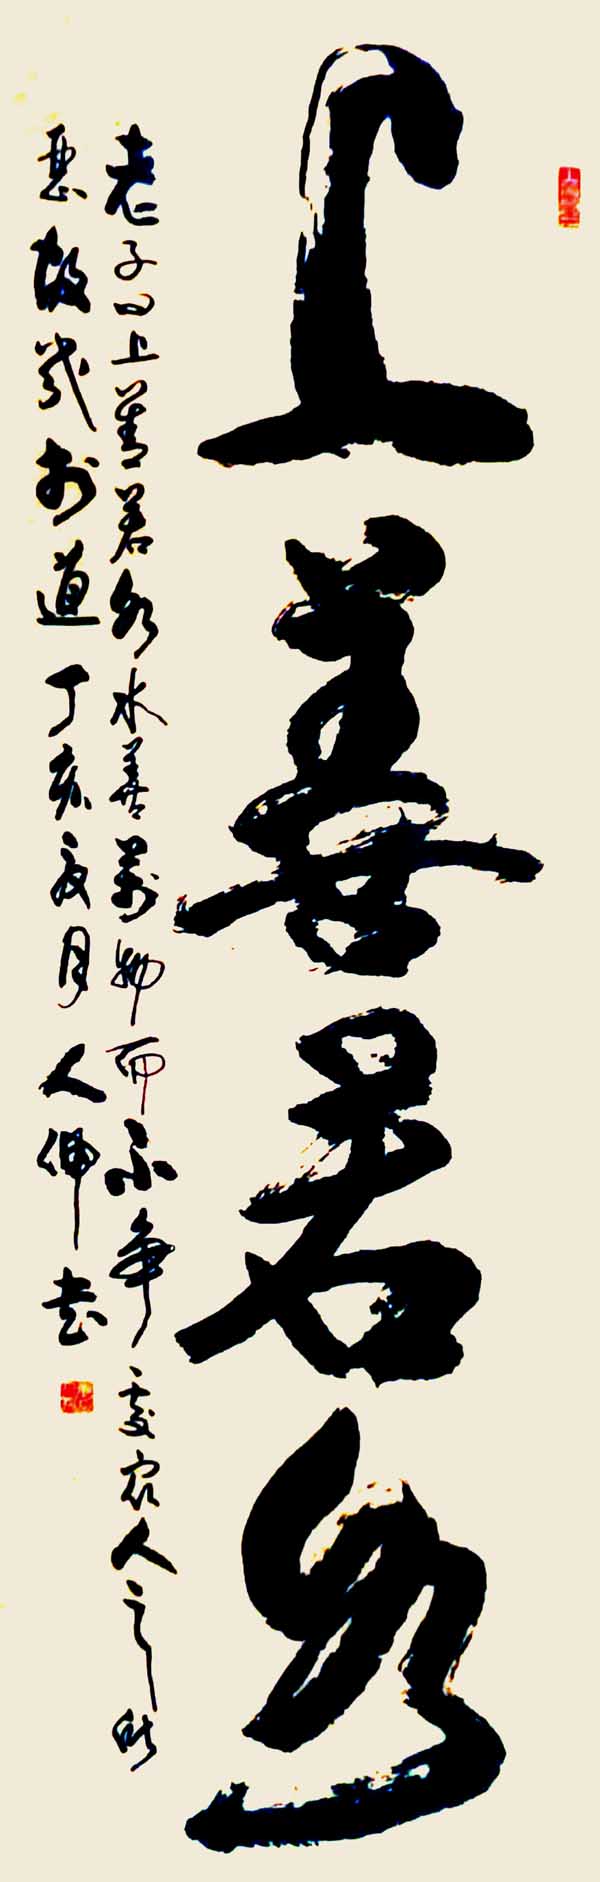 上善若水
老子曰上善若水水善萬物而不争處众人之所
惡故幾於道丁亥夏月人伟书